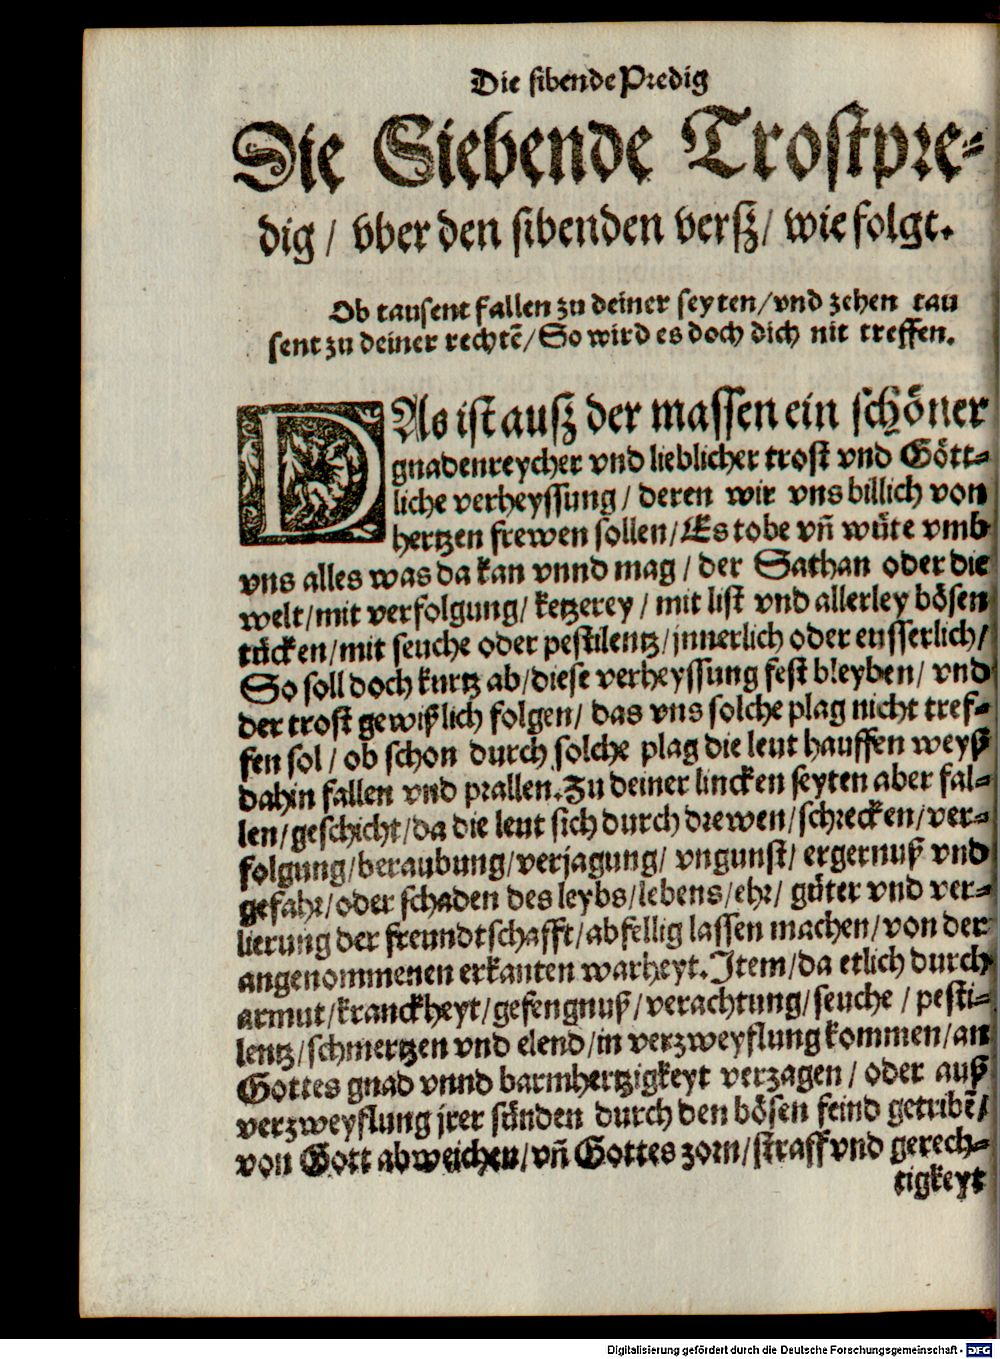 Die sibende Predig
Die Siebende Trostpre-
dig / vber den sibenden versz / wie folgt.
Ob tausent fallen zu deiner seyten / vnd zehen tau
sent zu deiner rechtē / So wird es doch dich nit treffen.
DAs ist ausz der massen ein schöner
gnadenreycher vnd lieblicher trost vnd Gött-
liche verheyssung / deren wir vns billich von
hertzen frewen sollen / Es tobe vñ wüte vmb
vns alles was da kan vnnd mag / der Sathan oder die
welt / mit verfolgung / ketzerey / mit list vnd allerley bösen
tücken / mit seuche oder pestilentz / jnnerlich oder eusserlich /
So soll doch kurtz ab / diese verheyssung fest bleyben / vnd
der trost gewiß lich folgen / das vns solche plag nicht tref-
fen sol / ob schon durch solche plag die leut hauffen weyß
dahin fallen vnd prallen. Zu deiner lincken seyten aber fal-
len / geschicht / da die leut sich durch drewen / schrecken / ver-
folgung / beraubung / verjagung / vngunst / ergernuß vnd
gefahr / oder schaden des leybs / lebens / ehr / güter vnd ver-
lierung der freundtschafft / abfellig lassen machen / von der
angenommenen erkanten warheyt. Item / da etlich durch
armut / kranckheyt / gefengnuß / verachtung / seuche / pesti-
lentz / schmertzen vnd elend / in verzweyflung kommen / an
Gottes gnad vnnd barmhertzigkeyt verzagen / oder auß
verzweyflung jrer sünden durch den bösen feind getribē /
von Gott abweichen / vñ Gottes zorn / straff vnd gerech-
tigkeyt
Digitalisierung gefördert durch die Deutsche Forschungsgemeinschaft - DFG